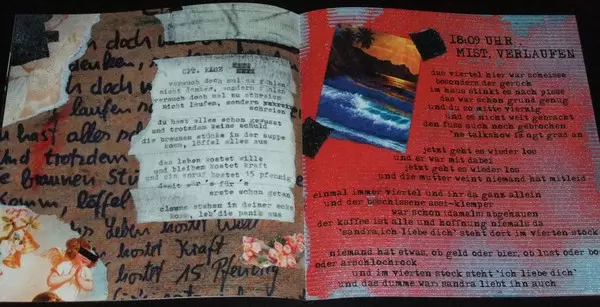 doch mal
denken,
laufen
hast alles
und trotzdem
braunen
komm, löffel
das Leben kostet
kostet Kraft
kostet 15 Pfennig
CPT. KAOS
versuch doch mal zu fühlen
nicht denken, sondern fühlen
versuch doch mal zu schreien
nicht laufen, sondern
schreien
du hast alles schon gewusst
und trotzdem keine schuld
die braunen stücke in der suppe
komm, löffel alles aus
das leben kostet wille
und bleiben kostet kraft
und ein anruf kostet 15 pfennig
damit wär's für's
erste schon getan
clowns stehen in deiner ecke
komm, leb' die panik aus
18:09 UHR.
MIST, VERLAUFEN
das viertel hier war scheisse
besonders der geruch
im haus stinkt es nach pisse
das war schon grund genug
und du so mitte vierzig
und es nicht weit gebracht
den fuss auch noch gebrochen
'ne talkshow is ngt grad an
jetzt geht es wieder los
und er war mit dabei
jetzt geht es wieder los
und die mutter weint niemand hat mitleid
einmal immer viertel und ihr da ganz allein
und der beschissene assi-klemper
war schon damals abgehauen
der kaffee ist alle und hoffnung niemals da
'sandra, ich liebe dich' steht dort im vierten stock
niemand hat etwas, ob geld oder bier, ob lust oder bo
oder arschlochrock
und im vierten stock steht 'ich liebe dich'
und das dumme war sandra liebt ihn auch